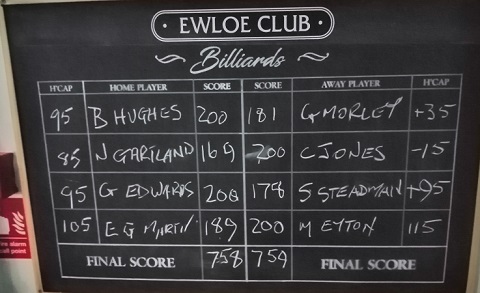 EWLOE CLUB
Billiards
H'CAP HOME PLAYER SCORE SCORE AWAY PLAYER H'CAP
95 B HUGHES 200 181 G MORLEY +35
85 N GARTLAND 169 200 C JONES -15
95 G EDWARDS 200 178 S STEADMAN +95
105 E G MARTIN 189 200 M EYTON 115
FINAL SCORE 758 759 FINAL SCORE
Fire alarm
call point